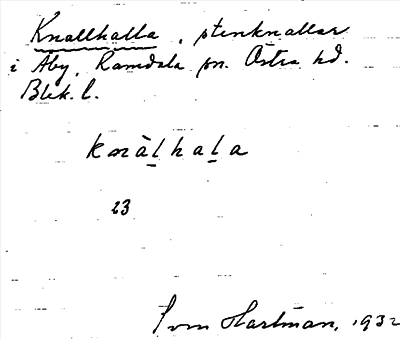 Knallhalla, stenknallar
i Åby, Ramdala sn. Östra hd.
Blek. l.
knàḻhaḻa
23
Sven Hartman, 1932